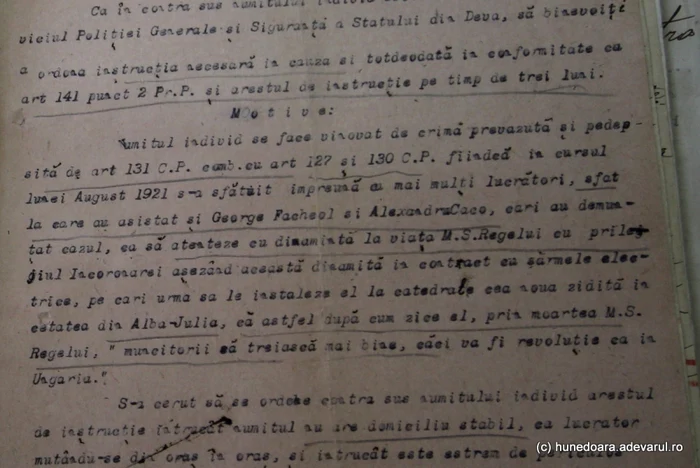 Ca în contra sus numitului individ
viciul Poliției Generale și Siguranță a Statului din Deva, să binevoiți
a ordona instrucția necesară în cauza și totdeodată in conformitate cu
art 141 punct 2 Pr.P. și arestul de instrucție pe timp de trei luni.
Motive:
Numitul individ se face vinovat de crimă prevazută și pedep-
sită de art 131 C.P. comb.cu art 127 și 130 C.P. fiindcă in cursul
lunei August 1921 s-a sfătuit impreună cu mai mulți lucrători, sfat
la care au asistat și George Fachsol si AlexandruCaco, cari au denun-
țat cazul, ca să atenteze cu dinamintă la viața M.S.Regelui cu prilej
jiul Incoronarei asezând această dinamită in contract cu sârmele elec-
trice, pe cari urma sa le instaleze el la catedrala cea noua zidită in
cetatea din Alba-Julia, că astfel după cum zice el, prin moartea M.S.
Regelui, " muncitorii să treiască mai bine, căci va fi revoluție ca in
Ungaria."
S-a cerut să se ordone contra sus numitului individ arestul
de instrucție intrucât numitul nu are domiciliu stabil, ca lucrator
mutându-se din oraș in oraș, și intrucât este extrem de periculos
(c) hunedoara.adevarul.ro